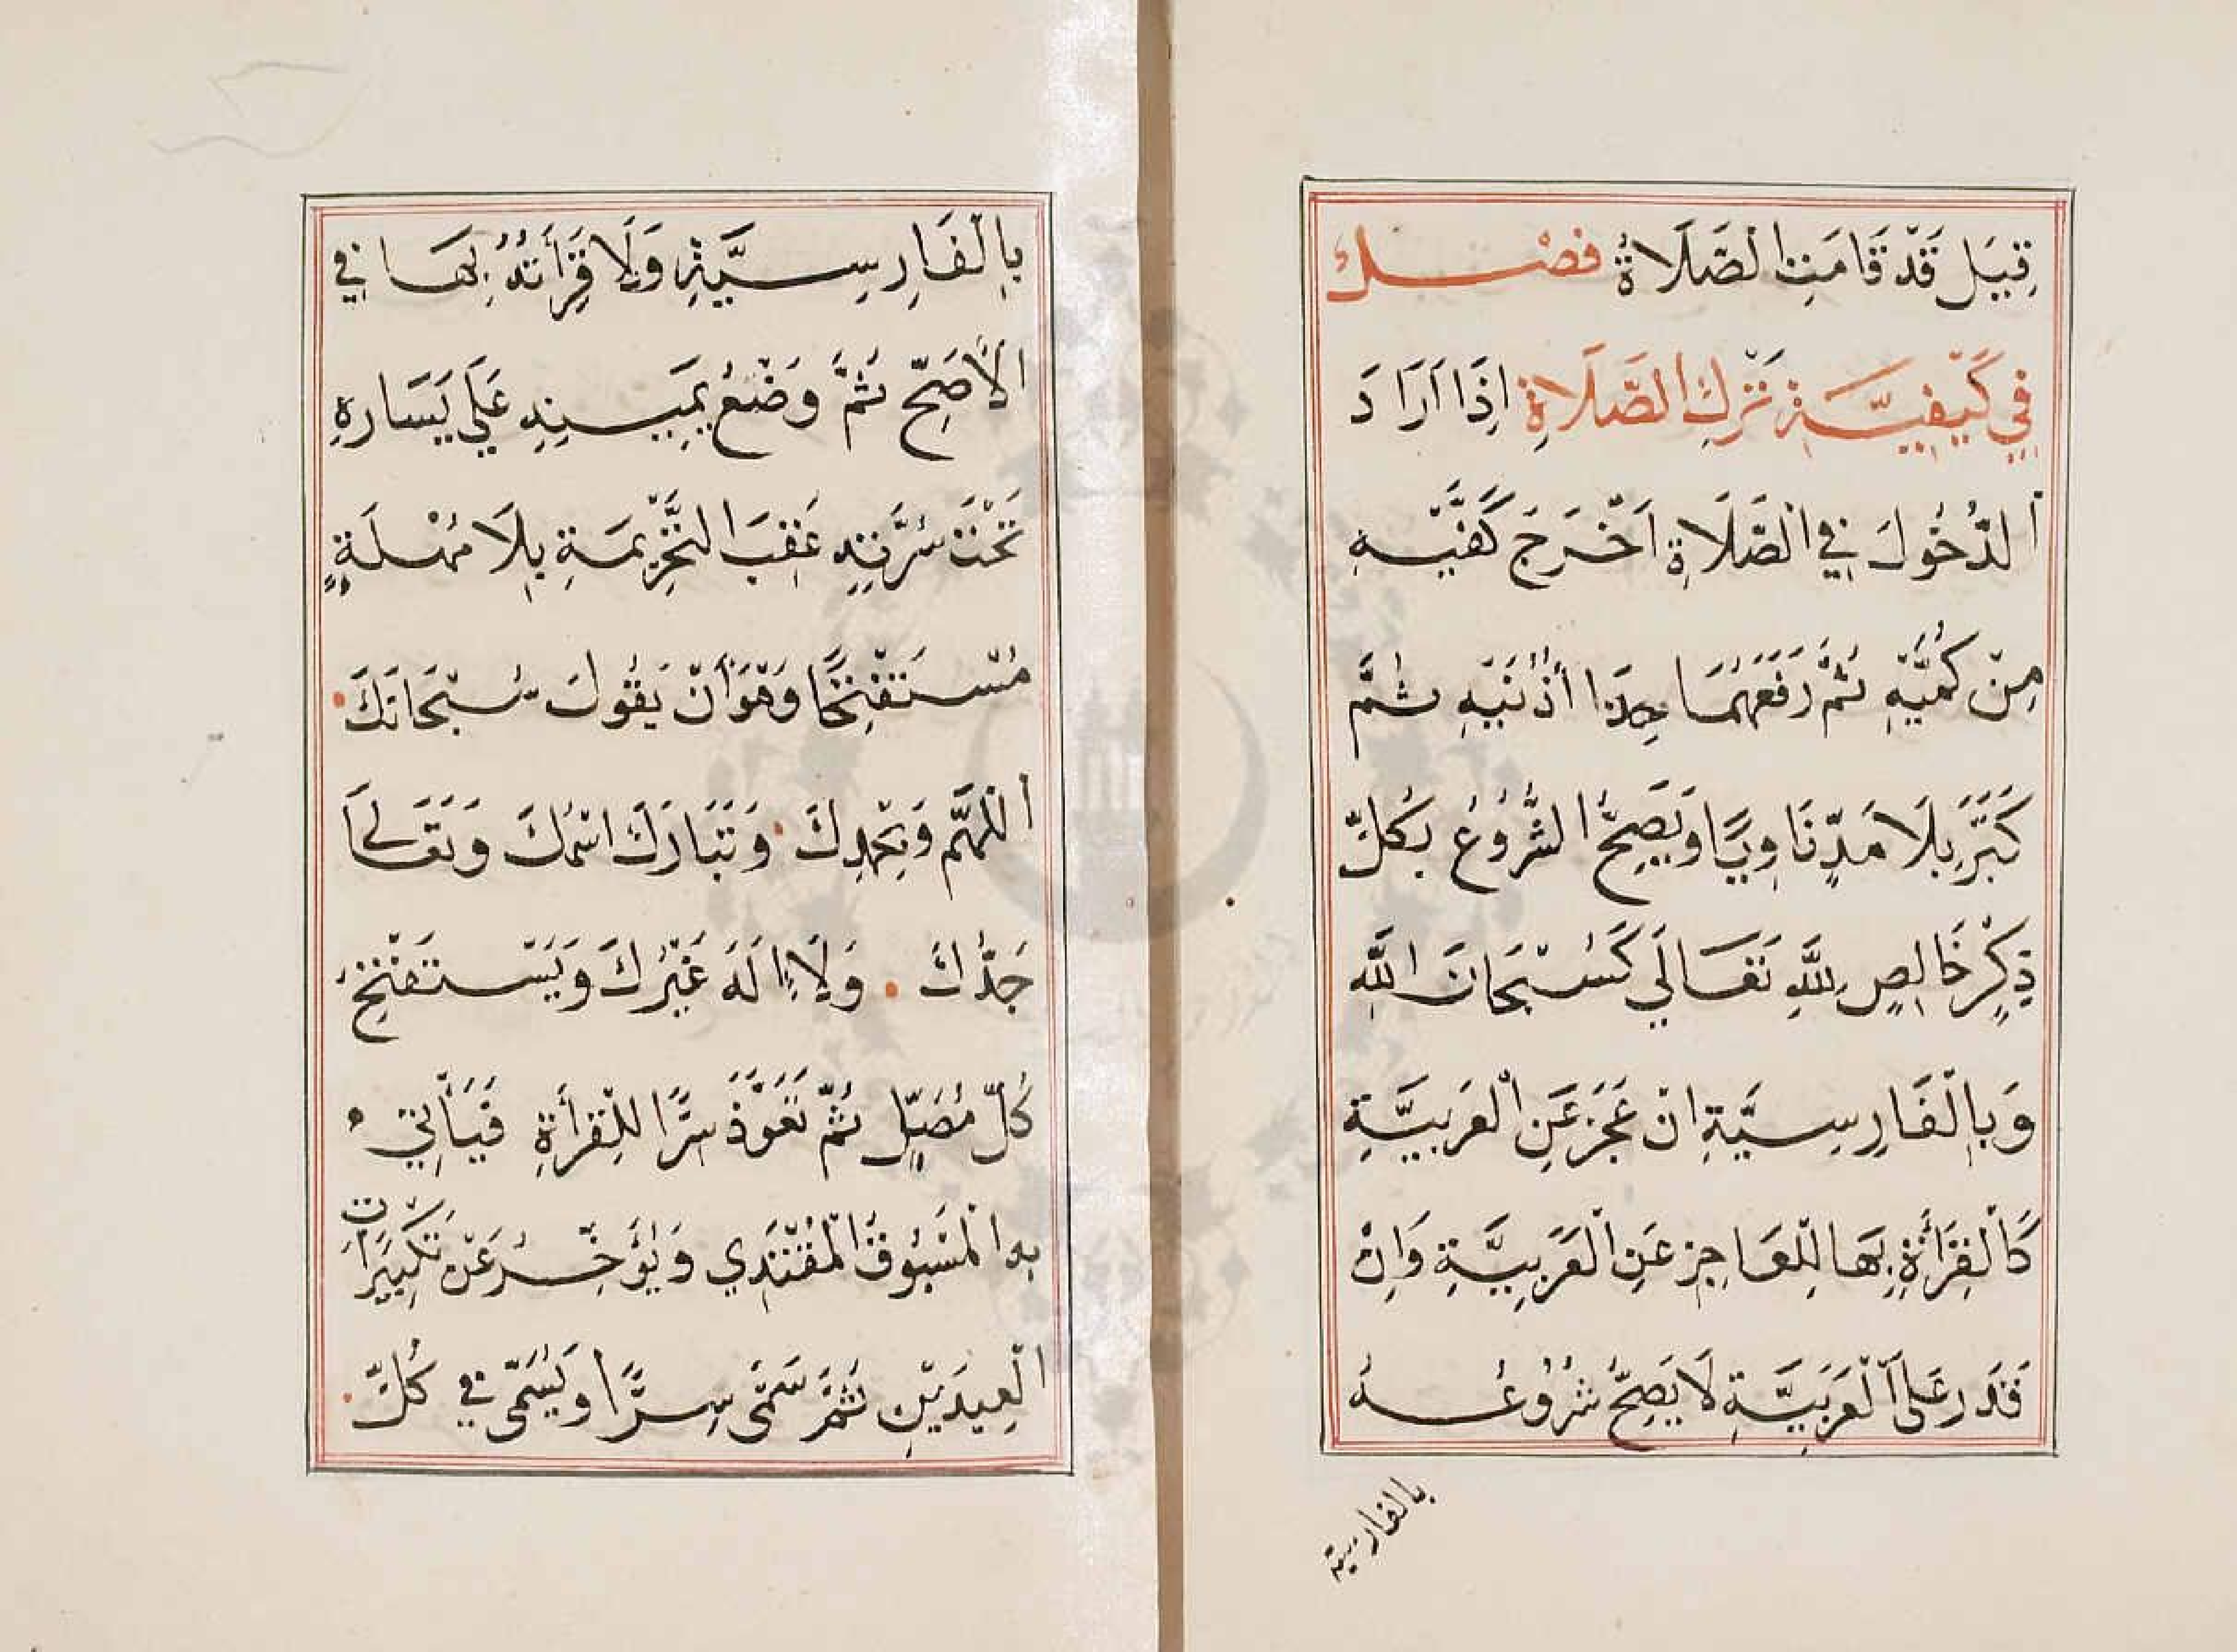 قِيْلَ قَدْ قَامَتِ الصَّلَاةُ فَصْلٌ
فِي كَيْفِيَّةِ تَرْكِ الصَّلَاةِ اِذَا اَرَادَ
الدُّخُولَ فِي الصَّلَاةِ اَخْرَجَ كَفَّيْهِ
مِنْ كُمَّيْهِ ثُمَّ رَفَعَهُمَا حِذَا أُذْنَيْهِ ثُمَّ
كَبَّرَ بِلَا مَدٍّ نَاوِيًا وَيَصِحُّ الشُّرُوعُ بِكُلِّ
ذِكْرٍ خَالِصٍ لِلَّهِ تَعَالَي كَسُبْحَانَ اللَّهِ
وَبِالْفَارِسِيَّةِ اِنْ عَجَزَ عَنِ الْعَرَبِيَّةِ
كَالْقِرَأَةِ بِهَا لِلْعَاجِزِ عَنِ الْعَرَبِيَّةِ وَاِنْ
قَدَرَ عَلَى الْعَرَبِيَّةِ لَا يَصِحُّ شُرُوعُهُ
بالفارسية
بِالْفَارِسِيَّةِ وَلَا قِرَأَتُهُ بِهَا فِي
الْاَصَحِّ ثُمَّ وَضْعُ يَمِيْنِهِ عَلَي يَسَارِهِ
تَحْتَ سُرَّتِهِ عَقِبَ التَّحْرِيمَةِ بِلَا مُهْلَةٍ
مُسْتَفْتِحًا وَهُوَ اَنْ يَقُولَ سُبْحَانَكَ
اللَّهُمَّ وَبِحَمْدِكَ وَتَبَارَكَ اسْمُكَ وَتَعَالَى
جَدُّكَ وَلَا اِلَهَ غَيْرُكَ وَيَسْتَفْتِحُ
كُلُّ مُصَلٍّ ثُمَّ تَعَوَّذَ سِرًّا لِلْقِرَأَةِ فَيَأْتِي
بِهِ الْمَسْبُوقُ الْمُقْتَدِي وَيُؤَخِّرُ عَنْ تَكْبِيْرَاتِ
الْعِيدَيْنِ ثُمَّ سَمَّى سِرًّا وَيُسَمِّى فِي كُلِّ